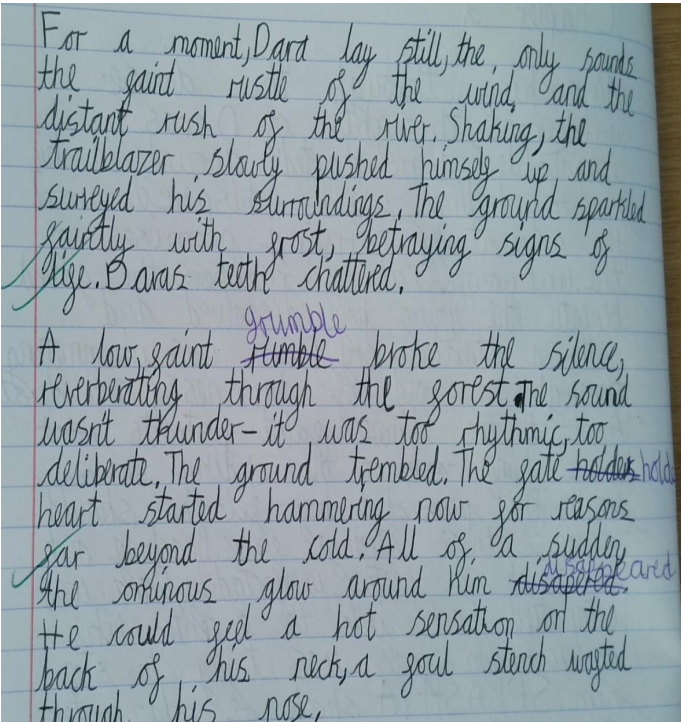 For a moment, Dara lay still, the only sounds
the faint rustle of the wind, and the
distant rush of the river. Shaking, the
trailblazer slowly pushed himself up and
surveyed his surroundings. The ground sparkled
faintly with frost, betraying signs of
life. Daras teeth chattered.
grumble
A low, faint rumble broke the silence,
reverberating through the forest. The sound
wasn't thunder-it was too rhythmic, too
deliberate. The ground trembled. The fate holders hold
heart started hammering now for reasons
far beyond the cold. All of a sudden,
disappeared
the ominous glow around him disapered.
He could feel a hot sensation on the
back of his neck, a foul stench wafted
through his nose,